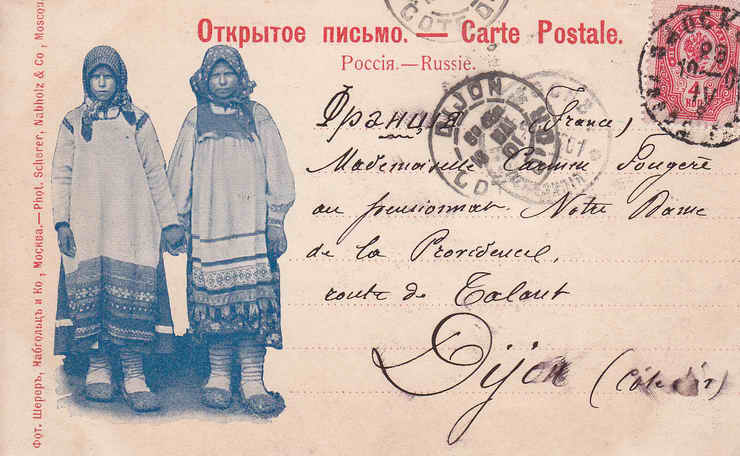 Открытое письмо. — Carte Postale.
Россія. — Russie.
Франція (France)
Mademoiselle Fougeré
au pensionnat Notre Dame
de la Providence,
route de Talant
Dijon (Côte d'Or)
Фот. Шереръ, Набгольцъ и Ко, Москва. — Phot. Scherer, Nabholz & Co, Moscou.
DIJON